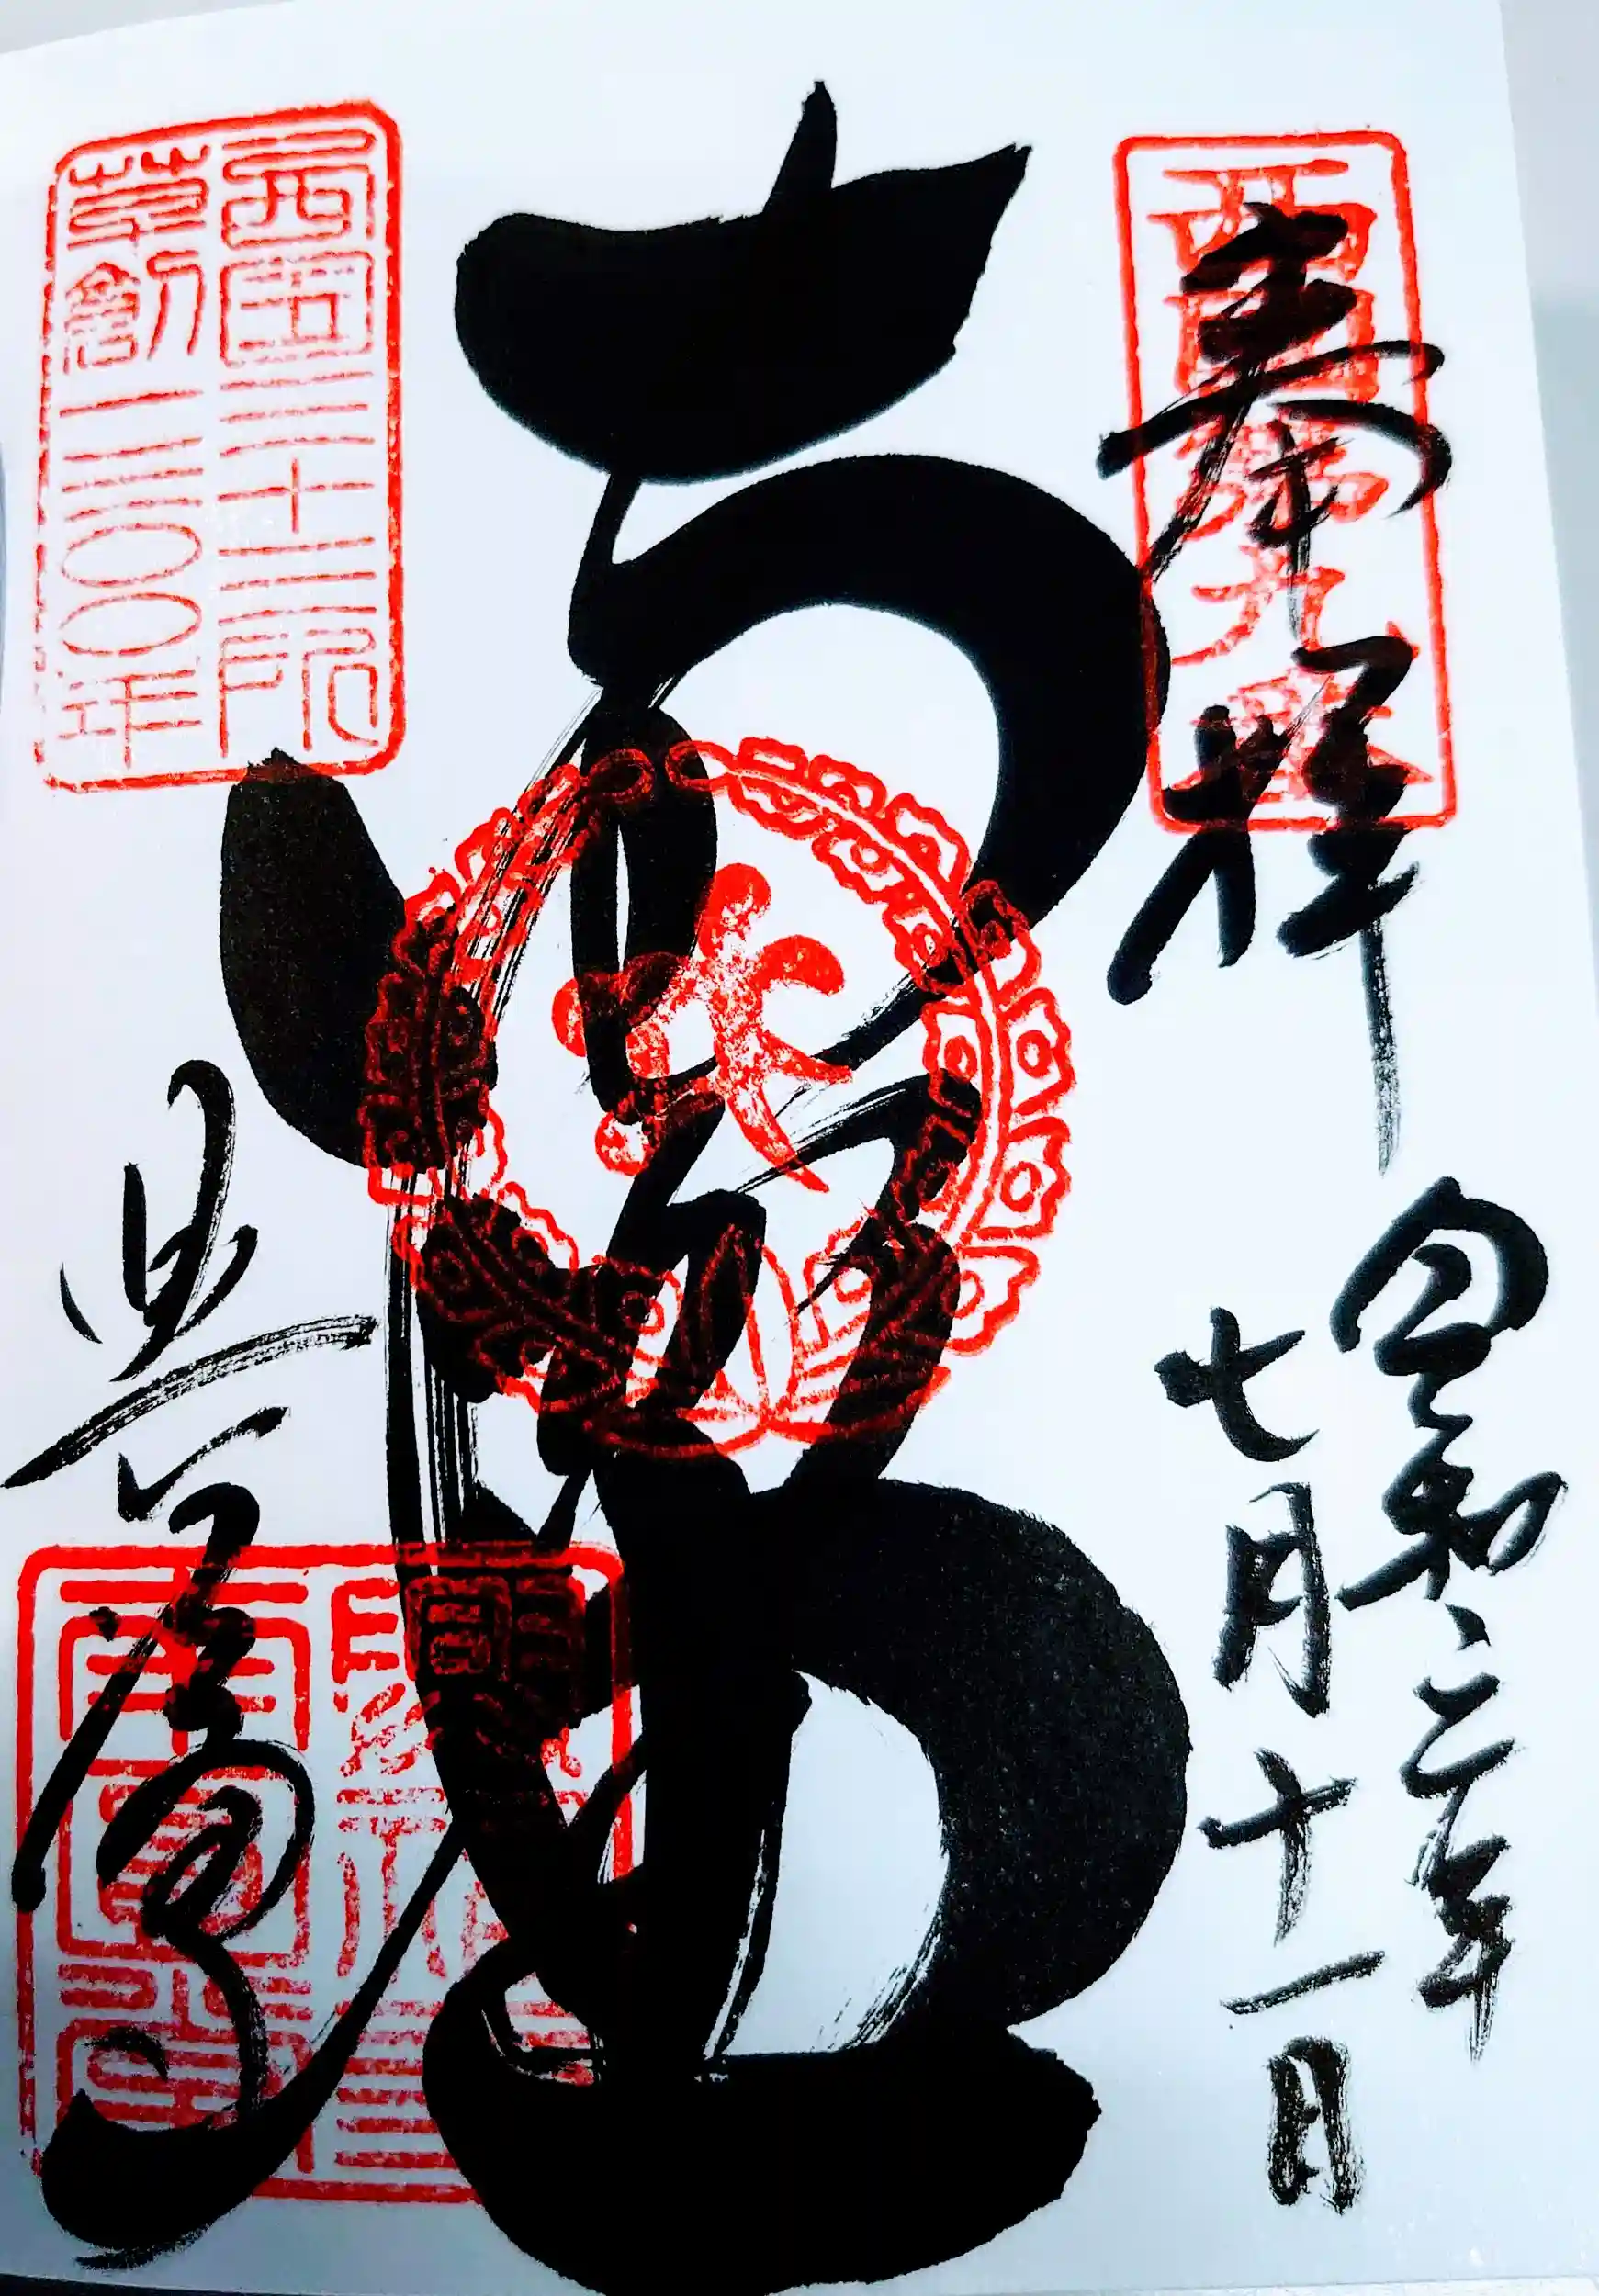 西国第九番
奉拝
令和二年
七月十一日
南円堂
西國三十三所
草創一三〇〇年
興福寺
南圓堂